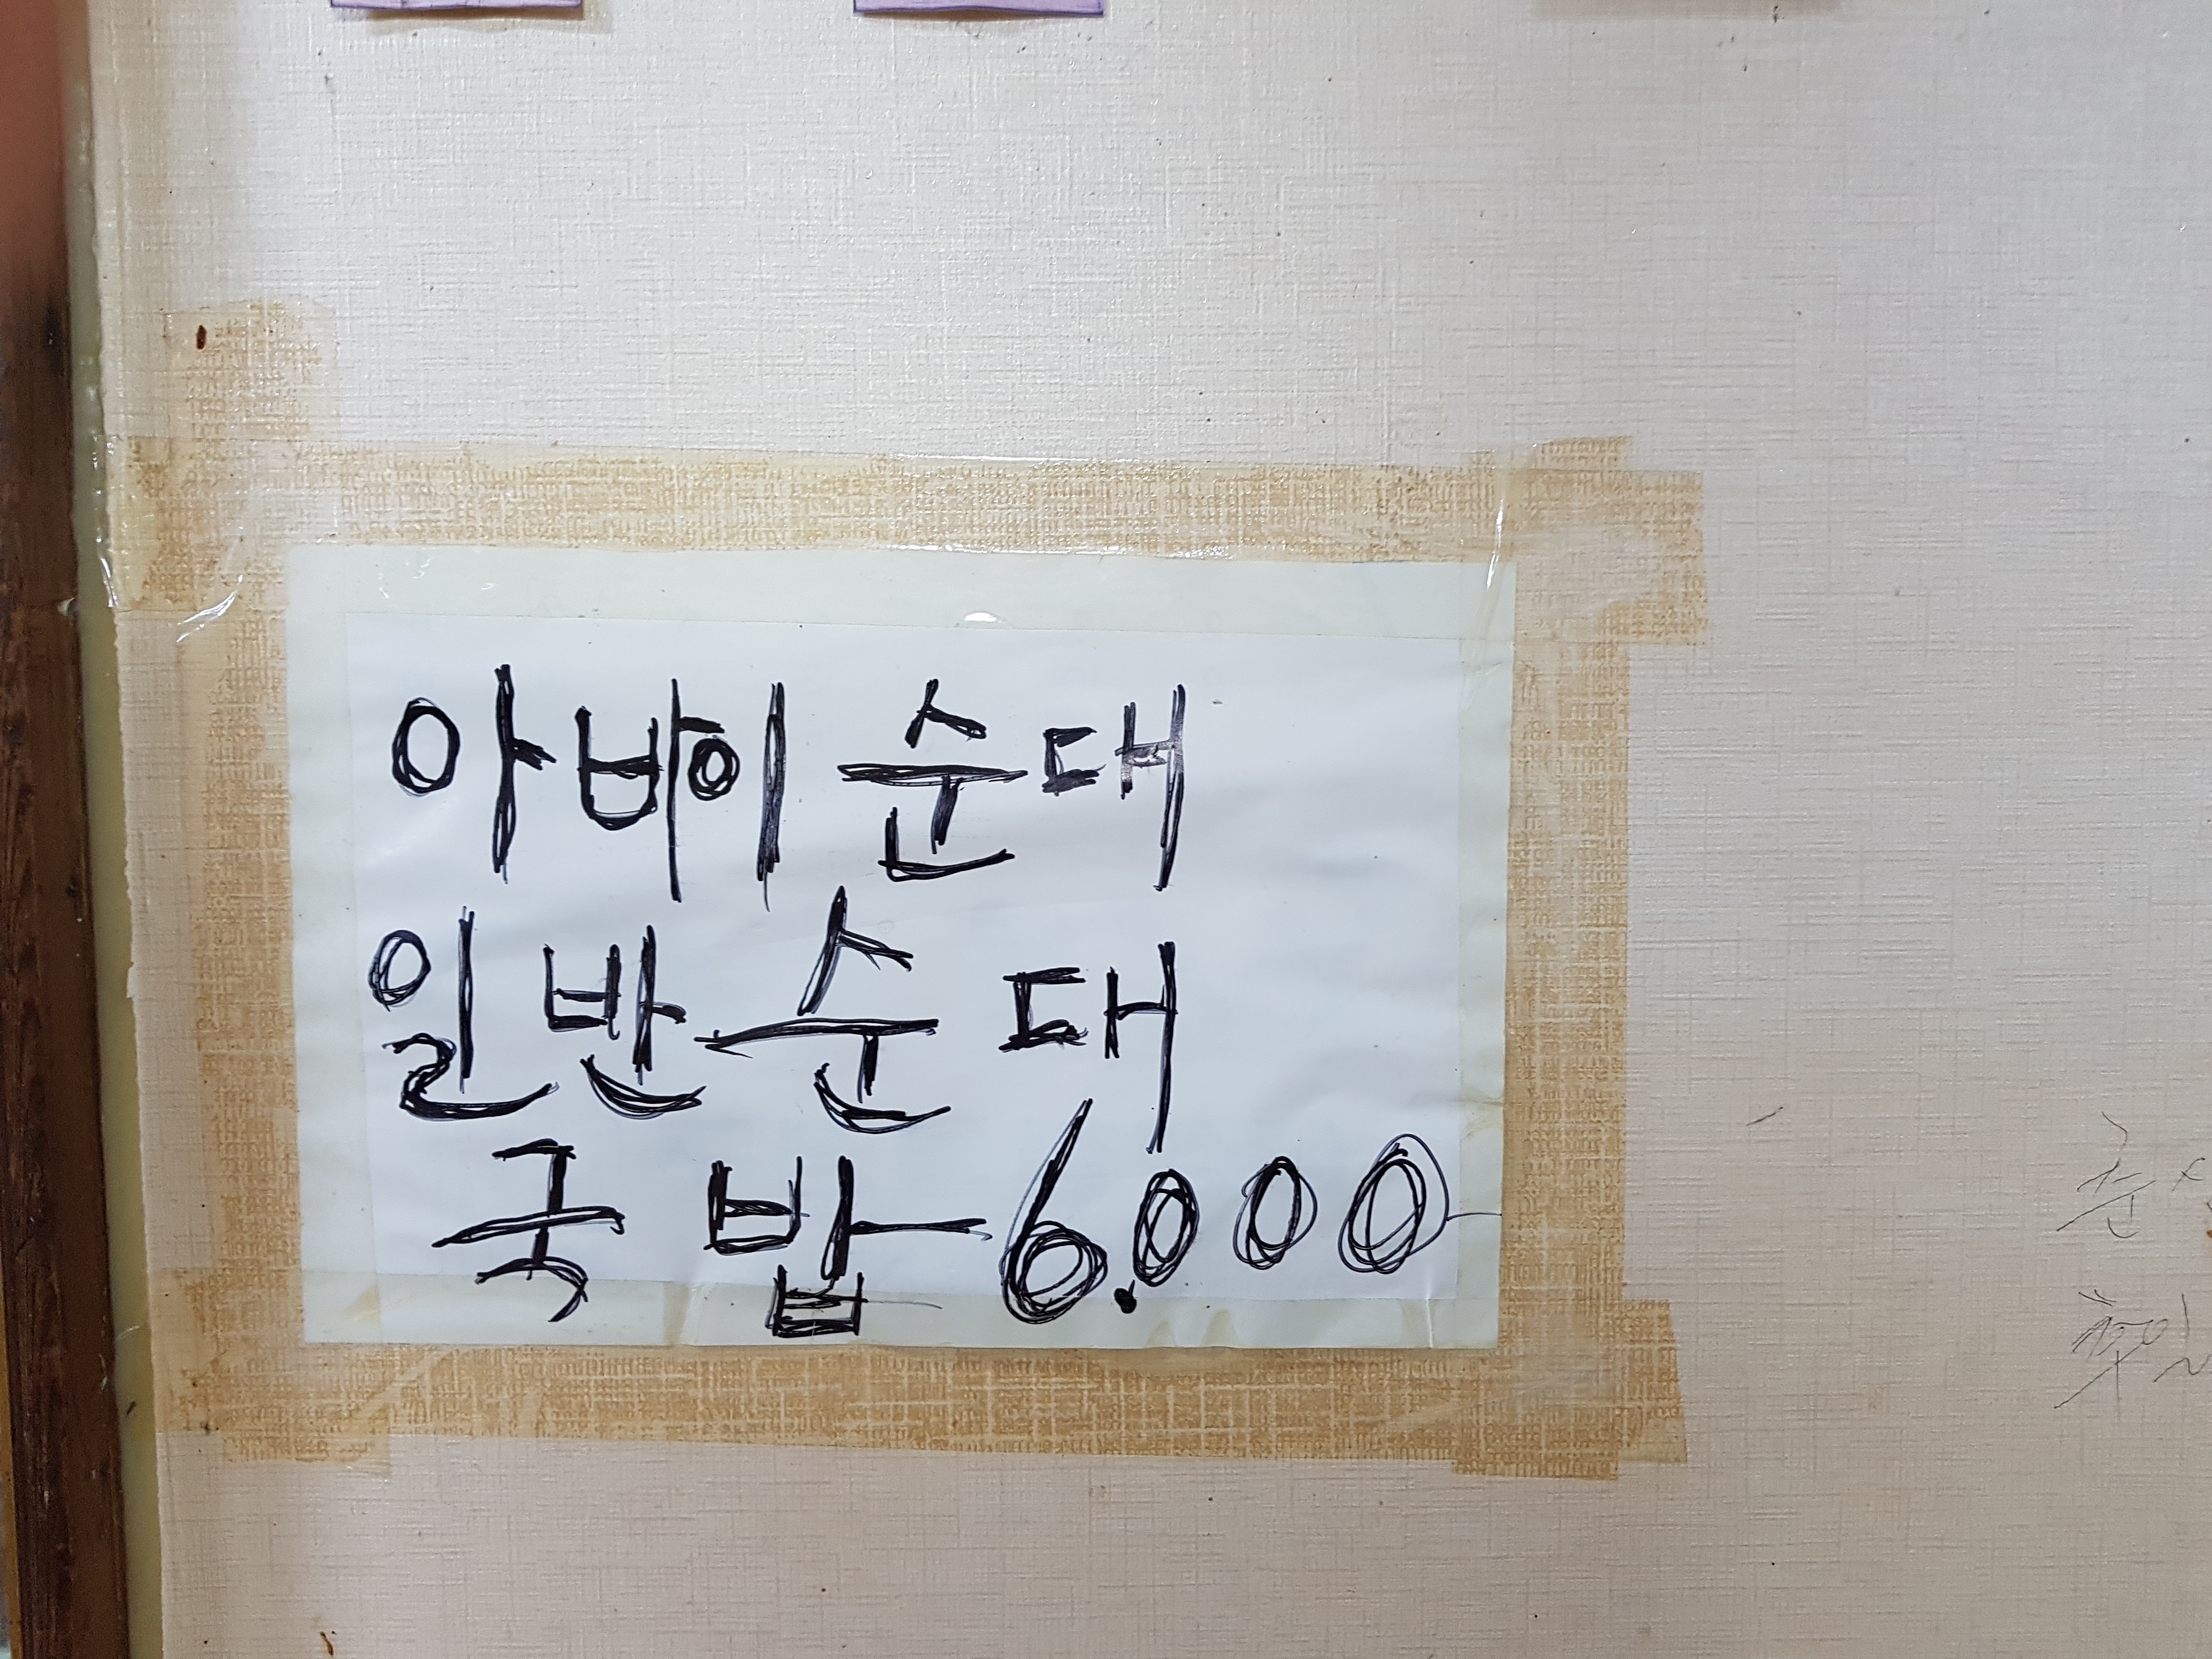 아바이 순대
일반순대
국밥 6.000